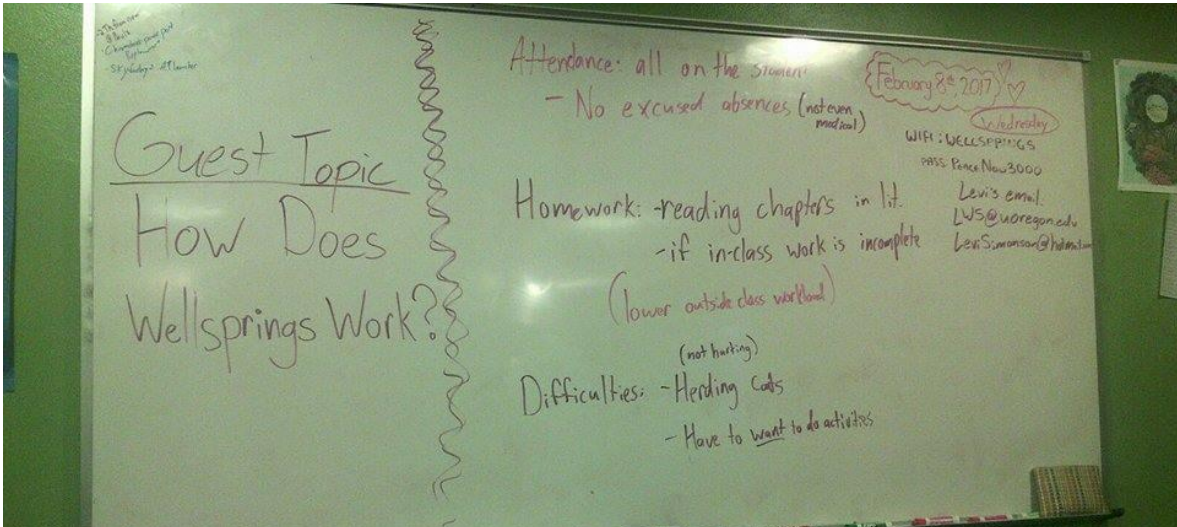 Guest Topic
How Does
Wellsprings Work?
Attendance: all on the student
- No excused absences (not even
medical)
February 8th, 2017
Wednesday
WIFI: WELLSPRINGS
PASS: PeaceNow3000
Levi's email
LWS@uoregon.edu
LeviSimonson@hotmail.com
Homework: -reading chapters in lit.
-if in-class work is incomplete
(lower outside class workload)
(not hurting)
Difficulties: -Herding Cats
- Have to want to do activities